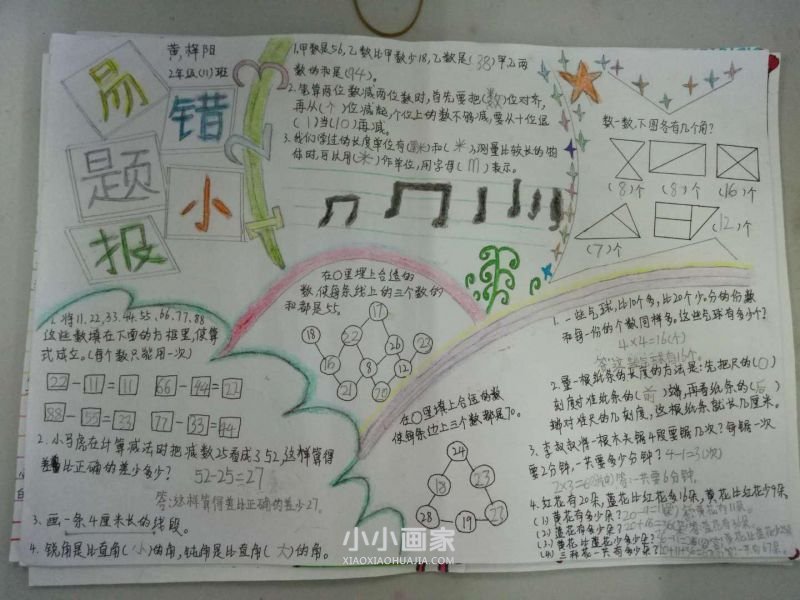 黄梓阳
2年级(11)班
易
错
题
小
报
1
2
3
1.甲数是56,乙数比甲数少18,乙数是(38)甲乙两
数的和是(94)。
2.笔算两位数减两位数时,首先要把(数)位对齐,
再从(个)位减起,个位上的数不够减,要从十位退
(1)当(10)再减。
3.我们学过的长度单位有(厘米)和(米),测量比较长的物
体时,可以用(米)作单位,用字母(m)表示。
数一数,下图各有几个角?
(8)个
(8)个
(16)个
(7)个
(12)个
在○里填上合适的
数,使每条线上的三个数的
和都是55。
17
18
26
16
22
8
12
22
21
20
1.将11、22、33、44、55、66、77、88
这些数填在下面的方框里,使算
式成立。(每个数只能用一次)
22-11=11
66-44=22
88-55=33
77-33=44
2.小马虎在计算减法时把减数25看成了52,这样算得
差比正确的差少多少?
52-25=27
答:这样算得差比正确的差少27。
3.画一条4厘米长的线段。
4.锐角是比直角(小)的角,钝角是比直角(大)的角。
在○里填上合适的数
使每条边上三个数都是70。
24
18
23
28
19
23
1.一些气球,比10个多,比20个少。分的份数
和每一份的个数同样多。这些气球有多少个?
4×4=16(个)
答:这些气球有16个。
2.量一根纸条的长度的方法是:先把尺的(0)
刻度对准纸条的(前)端,再看纸条的(后)
端对准尺的几刻度,这根纸条就长几厘米。
3.李叔叔将一根木头锯4段要锯几次?每锯一次
要2分钟,一共要多少分钟?4-1=3(次)
2×3=6(分钟)答:一共要6分钟。
4.红花有20朵,蓝花比红花多16朵,黄花比红花少9朵。
(1)黄花有多少朵?
(2)蓝花有多少朵?
(3)黄花比蓝花少多少朵?
(4)三种花一共有多少朵?
小小画家
XIAOXIAOHUAJIA.COM